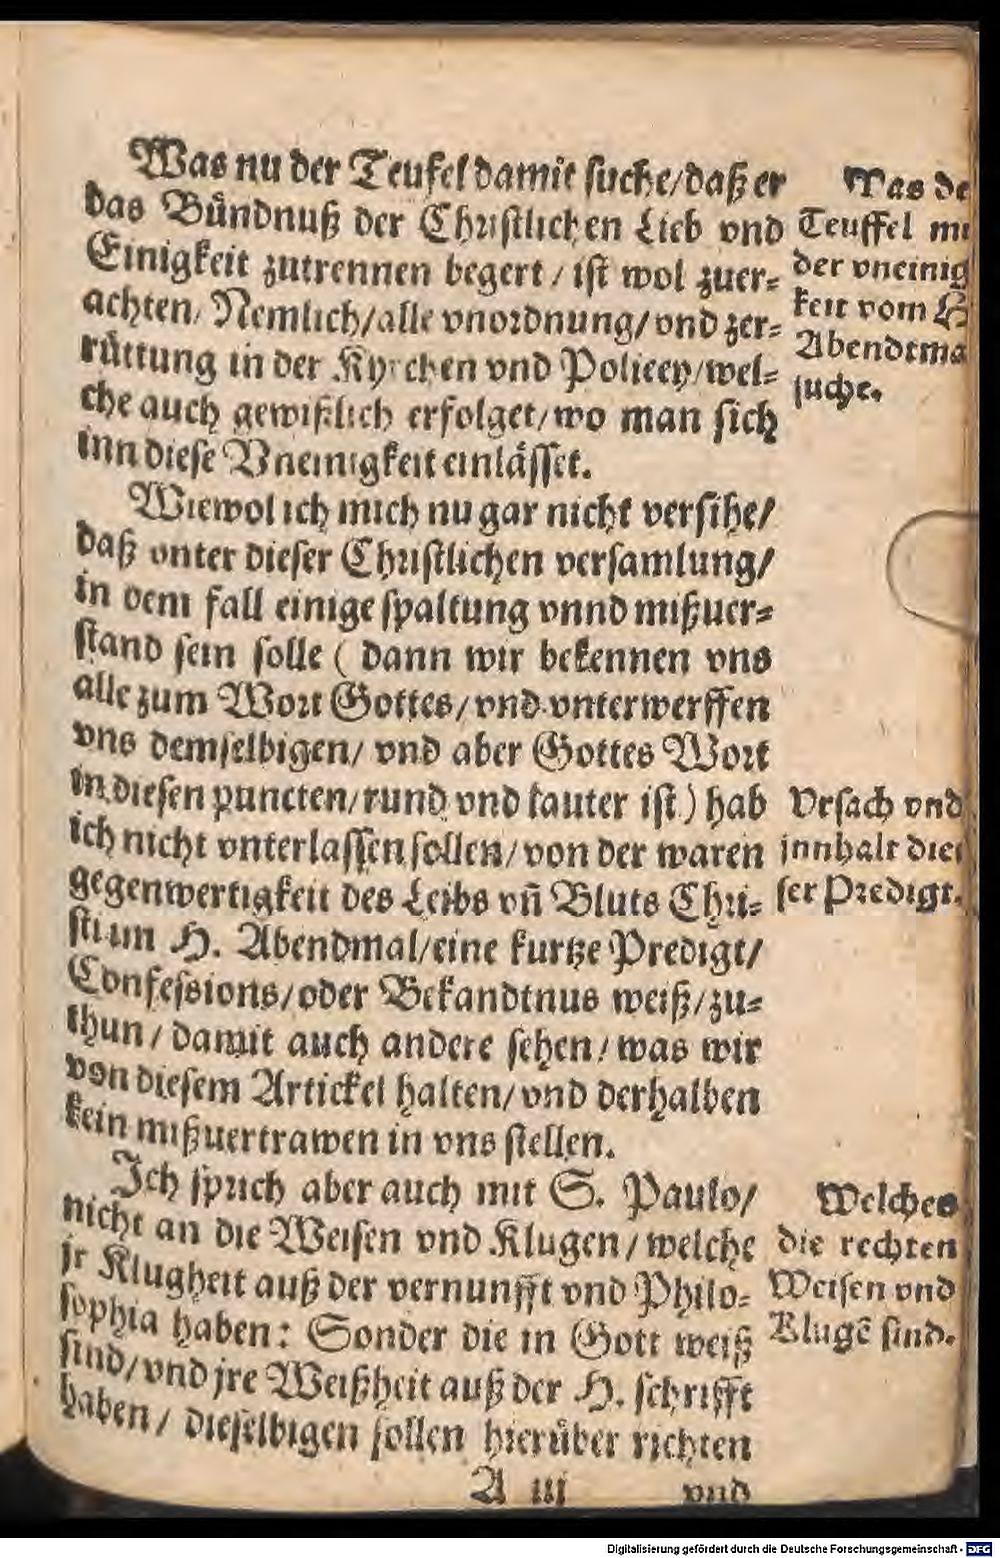 Was nu der Teufel damit suche/daß er
das Bündnuß der Christlichen Lieb vnd
Einigkeit zutrennen begert / ist wol zuer-
achten/ Nemlich/alle vnordnung/vnd zer-
rüttung in der Kyrchen vnd Policey/wel-
che auch gewißlich erfolget/wo man sich
inn diese Vneinigkeit einlässet.
Was de
Teuffel mi
der vneinig
keit vom H
Abendtma
suche.
Wiewol ich mich nu gar nicht versihe/
daß vnter dieser Christlichen versamlung/
in dem fall einige spaltung vnnd mißuer-
stand sein solle ( dann wir bekennen vns
alle zum Wort Gottes/vnd vnterwerffen
vns demselbigen/ vnd aber Gottes Wort
in diesen puncten/rund vnd lauter ist) hab
ich nicht vnterlassen sollen/von der waren
gegenwertigkeit des Leibs vñ Bluts Chri-
sti im H. Abendmal/eine kurtze Predigt/
Confessions/oder Bekandtnus weiß/zu-
thun / damit auch andere sehen/was wir
von diesem Artickel halten/vnd derhalben
kein mißuertrawen in vns stellen.
Vrsach vnd
innhalt die
ser Predigt.
Ich sprich aber auch mit S. Paulo/
nicht an die Weisen vnd Klugen/welche
jr Klugheit auß der vernunfft vnd Philo-
sophia haben: Sonder die in Gott weiß
sind/vnd jre Weißheit auß der H. schrifft
haben/ dieselbigen sollen hierüber richten
Welches
die rechten
Weisen vnd
Klugẽ sind.
A iii vnd
Digitalisierung gefördert durch die Deutsche Forschungsgemeinschaft - DFG